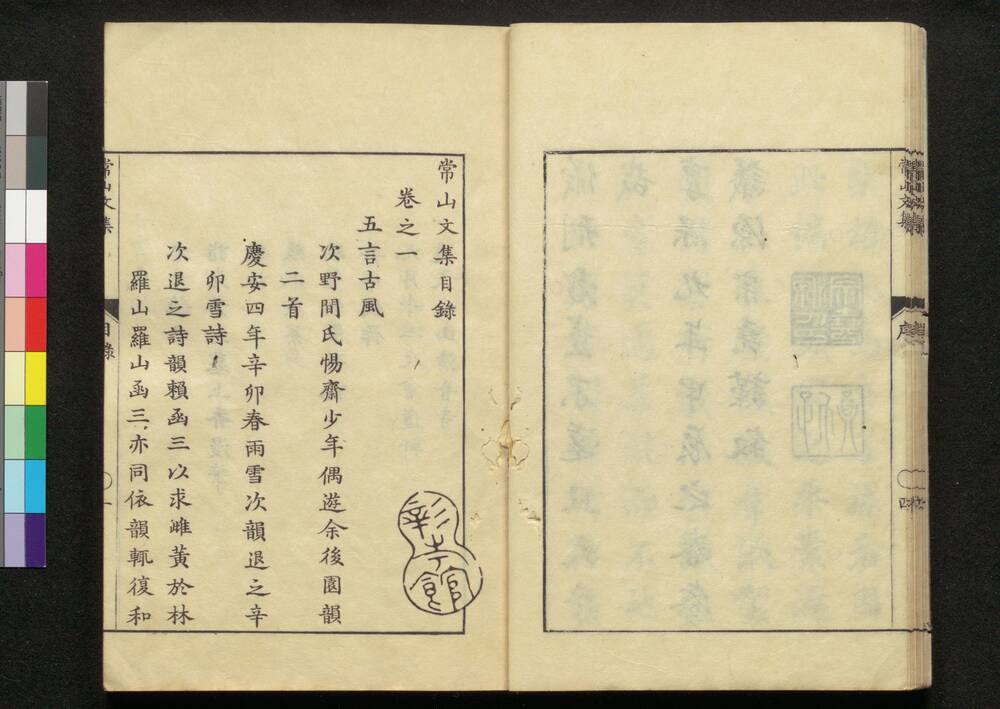 常山文集
序
常山文集目錄
卷之一
五言古風
次野間氏惕齋少年偶遊余後園韻
二首
慶安四年辛卯春雨雪次韻退之辛
卯雪詩
次退之詩韻賴函三以求雌黃於林
羅山羅山函三亦同依韻輒復和
常山文集
目錄
一
彰考館